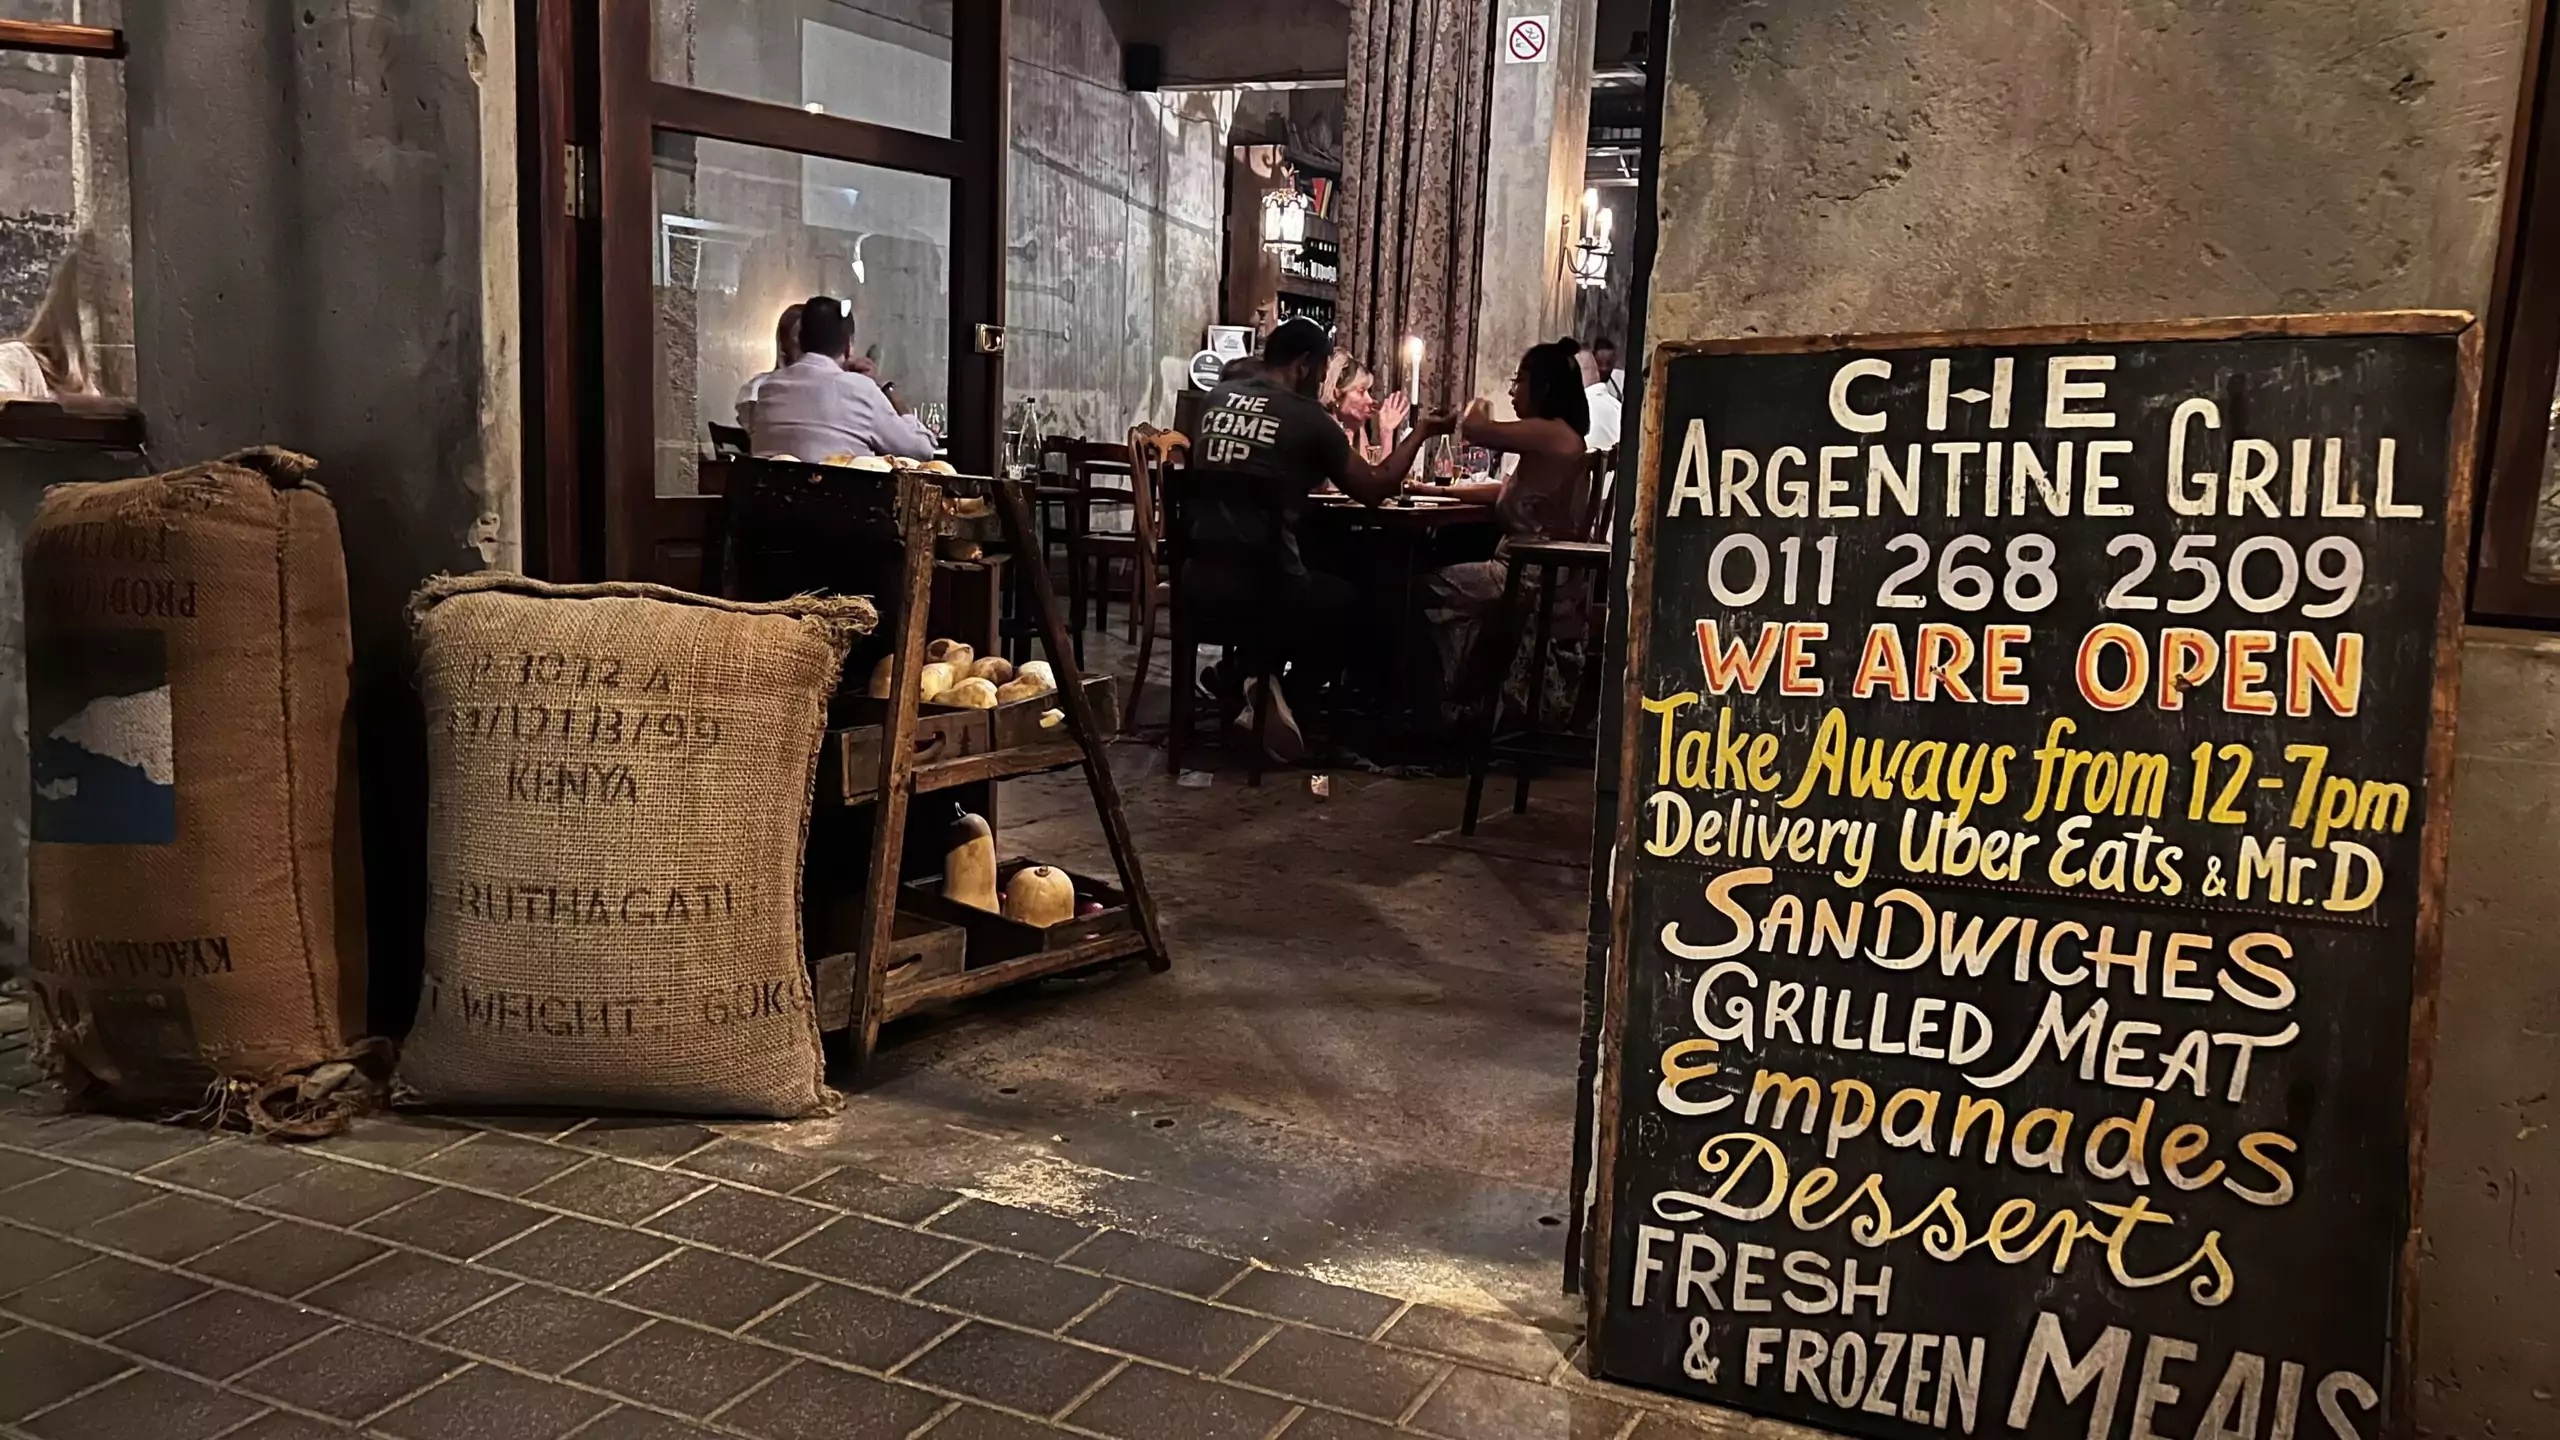 CHE
ARGENTINE GRILL
011 268 2509
WE ARE OPEN
Take Aways from 12-7pm
Delivery Uber Eats & Mr.D
SANDWICHES
GRILLED MEAT
Empanades
Desserts
FRESH
& FROZEN MEALS
THE
COME
UP
KENYA
WEIGHT: 60KG